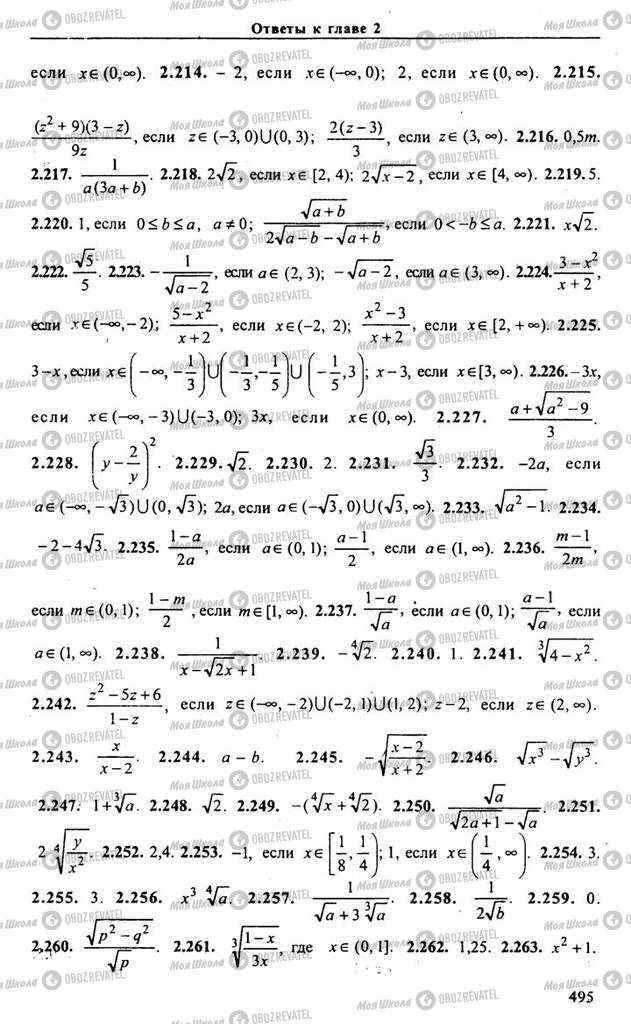 Ответы к главе 2
если x∈(0,∞). 2.214. – 2, если x∈(–∞, 0); 2, если x∈(0, ∞). 2.215.
(z² + 9)(3 – z)/9z, если z∈(–3, 0)∪(0, 3); 2(z – 3)/3, если z∈(3, ∞). 2.216. 0,5m.
2.217. 1/(a(3a + b)). 2.218. 2√2, если x∈[2, 4); 2√(x – 2), если x∈[4, ∞). 2.219. 5.
2.220. 1, если 0≤b≤a, a≠0; √(a+b)/(2√(a–b) – √(a+b)), если 0<–b≤a. 2.221. x√2.
2.222. √5/5. 2.223. –1/√(a–2), если a∈(2, 3); –√(a–2), если a∈(3, ∞). 2.224. (3–x²)/(x+2),
если x∈(–∞,–2); (5–x²)/(x+2), если x∈(–2, 2); (x²–3)/(x+2), если x∈[2, +∞). 2.225.
3–x, если x∈(–∞, –1/3)∪(–1/3, –1/5)∪(–1/5, 3); x–3, если x∈[3, ∞). 2.226. –3x,
если x∈(–∞, –3)∪(–3, 0); 3x, если x∈(0, ∞). 2.227. (a+√(a²–9))/3.
2.228. (y – 2/y)². 2.229. √2. 2.230. 2. 2.231. √3/3. 2.232. –2a, если
a∈(–∞, –√3)∪(0, √3); 2a, если a∈(–√3, 0)∪(√3, ∞). 2.233. √(a²–1). 2.234.
–2–4√3. 2.235. (1–a)/2a, если a∈(0, 1); (a–1)/2, если a∈(1, ∞). 2.236. (m–1)/2m,
если m∈(0, 1); (1–m)/2, если m∈[1, ∞). 2.237. (1–a)/√a, если a∈(0, 1); (a–1)/√a, если
a∈(1, ∞). 2.238. 1/(x–√(2x)+1). 2.239. –⁴√2. 2.240. 1. 2.241. ³√(4–x²).
2.242. (z²–5z+6)/(1–z), если z∈(–∞, –2)∪(–2, 1)∪(1, 2); z–2, если z∈(2, ∞).
2.243. x/(x–2). 2.244. a – b. 2.245. –√((x–2)/(x+2)). 2.246. √x³ – √y³.
2.247. 1+³√a. 2.248. √2. 2.249. –(⁴√x+⁴√2). 2.250. √a/(√(2a+1)–√a). 2.251.
2 ⁴√(y/x²). 2.252. 2,4. 2.253. –1, если x∈[1/8, 1/4); 1, если x∈(1/4, ∞). 2.254. 3.
2.255. 3. 2.256. x³ ⁴√a. 2.257. 1/(√a+3 ³√a). 2.258. 1/(2√b). 2.259. 0.
2.260. √(p²–q²)/√p. 2.261. ³√((1–x)/3x), где x∈(0, 1]. 2.262. 1,25. 2.263. x²+1.
495